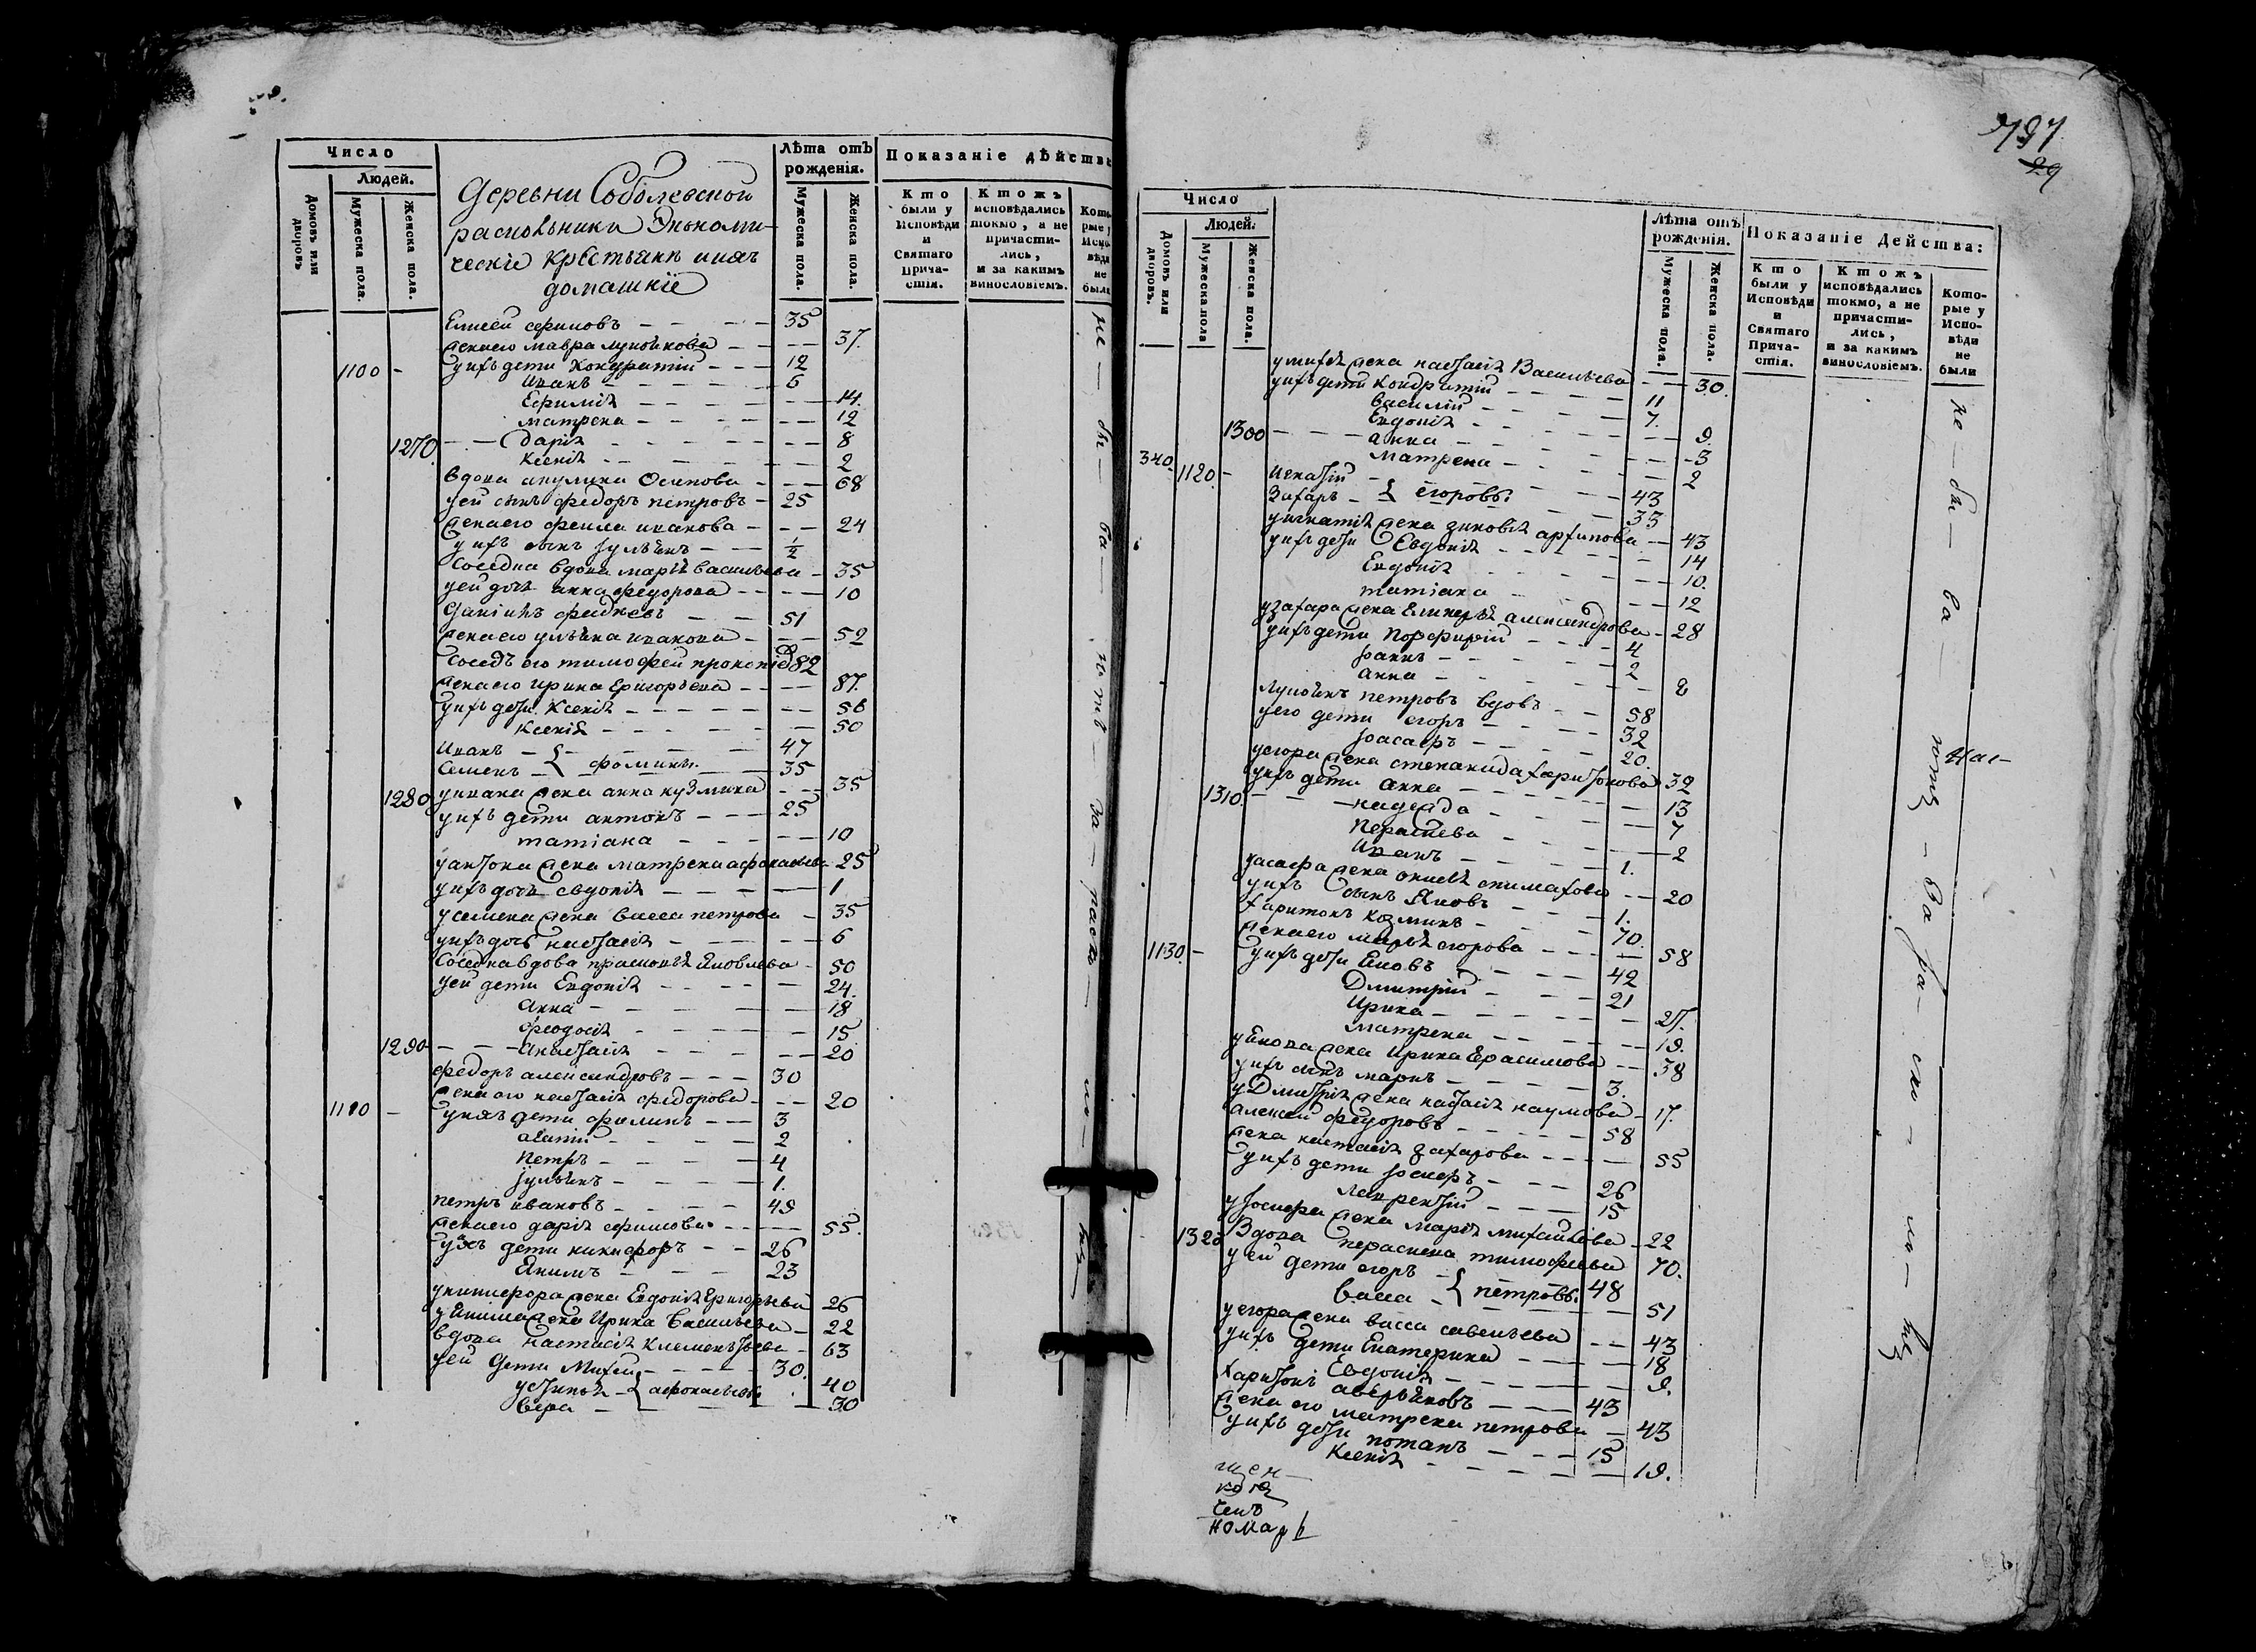 Число
Людей.
Домовъ или дворовъ
Мужеска пола.
Женска пола.
Деревни Соболевской
раскольники Экономи-
ческие крестьяне и ихъ
домашніе
Лѣта отъ рожденія.
Мужеска пола.
Женска пола.
Показаніе дѣйства
Кто были у Исповѣди и Святаго Прича-стія.
Ктожъ исповѣдались токмо, а не причасти-лись, и за какимъ винословіемъ.
Кото-рые у Испо-вѣди не были
Елисей ефимовъ 35
жена его мавра 37
1100 у ихъ дети Кондратий 12
Иванъ 6
Ефимія 14.
матрена 12
1270 Дарія 8
Ксенія 2
вдова акулина Осипова 68
у ей сынъ федоръ петровъ 25
жена его иванова 24
у ихъ сынъ 1/2
Соседка вдова марія васильева 35
у ей дочь анна федорова 10
51
жена его ульяна иванова 52
Соседъ его тимофей 82
жена его ирина Григорьева 87.
у ихъ дети Ксенія 56
Ксенія 50
Иванъ 47
Семенъ } фомины. 35
1280 у ивана жена анна кузмина 35
у ихъ дети антонъ 25
татіана 10
у антона жена матрена афонасьева 25
у ихъ дочь евдокія 1
у семена жена васса петрова 35
у ихъ дочь настасія 6
Соседка вдова Яковлева 50
у ей дети Евдокія 24.
Анна 18
Феодосія 15
1290 Анастасія 20
Федоръ александровъ 30
жена его настасія федорова 20
1110 у ихъ дети филипъ 3
2
Петръ 4
1.
петръ ивановъ 49
жена его дарія ефимова 55.
у ихъ дети никифоръ 26
Якимъ 23
у никифора жена Евдокія Григорьева 26
у Якима жена Ирина Васильева 22
вдова настасія Клементьева 63
у ей дети Михей 30.
40
вера 30
не – бы – ва – ютъ – за – раско – ло – мъ
797
29
Число
Людей.
Домовъ или дворовъ.
Мужеска пола
Женска пола.
Лѣта отъ рожденія.
Мужеска пола.
Женска пола.
Показаніе Действа:
Кто были у Исповѣди и Святаго Прича-стія.
Ктожъ исповѣдались токмо, а не причасти-лись, и за какимъ винословіемъ.
Кото-рые у Испо-вѣди не были
у михея жена настасія Васильева 30.
у ихъ дети Кондратий 11
василий 7.
Евдокія 9.
1300 анна 3
матрена 2
340. 1120. Игнатій 43
Захаръ } егоровы. 33
у игнатія жена зиновія архипова 43
у ихъ дети Евдокія 14
Евдокія 10.
татіана 12
у захара жена александрова 28
у ихъ дети Порфирій 4
2
анна 2
петровъ вдовъ 58
у его дети егоръ 32
20.
у егора жена степанида харитонова 32
у ихъ дети анна 13
1310 надежда 7
Параскева 2
Иванъ 1.
20
у ихъ сынъ Яковъ 1.
Харитонъ козминъ 70.
жена его марья егорова 58
1130. у ихъ дети Яковъ 42
Дмитрій 21
Ирина 27.
матрена 19.
у Якова жена Ирина Герасимова 38
у ихъ сынъ маркъ 3.
у Дмитрія жена настасія наумова 17.
алексей федоровъ 58
жена настасія захарова 55
у ихъ дети 26
лаврентій 15
жена марія михайлова 22
1320 Вдова параскева тимофеева 70.
у ей дети егоръ } петровы. 48
васса 51
у егора жена васса савельева 43
у ихъ дети Екатерина 18
Евдокія 9.
Харитонъ аверьяновъ 43
жена его матрена петрова 43
у ихъ дети потапъ 15
Ксенія 19.
не – бы – ва – ютъ – за – ра – ско – ло – мъ
щен
номарь